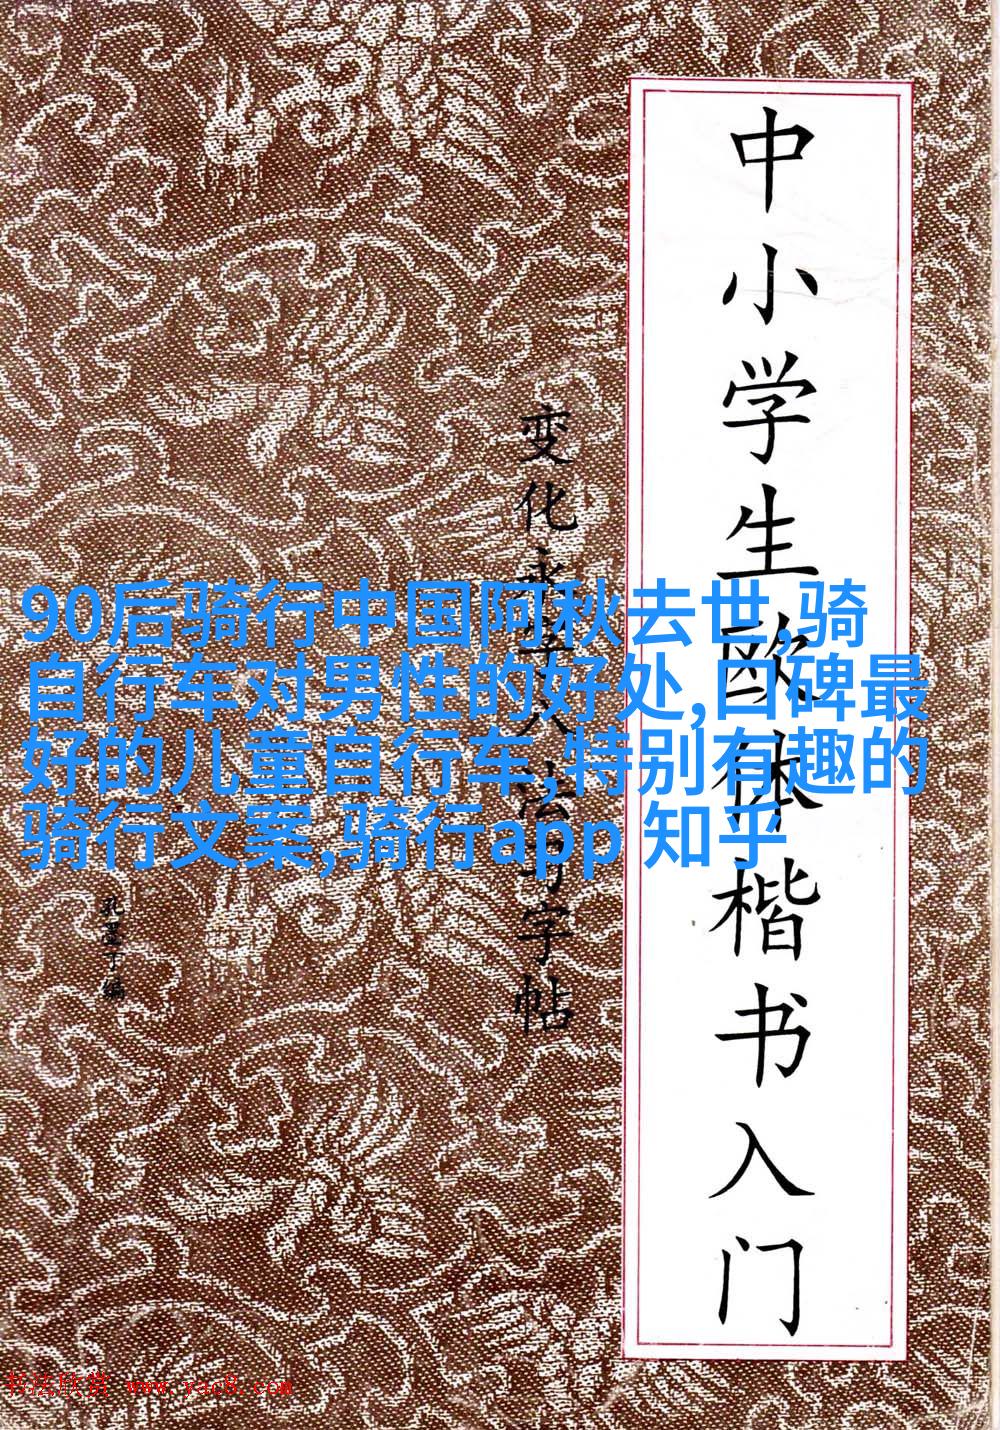 中小学生欧体楷书入门
变化永字八法习字帖
孔墨丁编
90后骑行中国阿秋去世,骑
自行车对男性的好处,口碑最
好的儿童自行车,特别有趣的
骑行文案,骑行app 知乎
书法欣赏 www.yac8.com